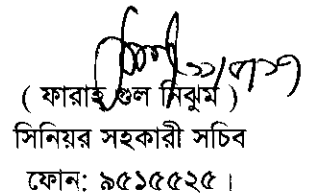 ( ফারাহ গুল নিঝুম )
সিনিয়র সহকারী সচিব
ফোন: ৯৫১৫৫২৫ ।